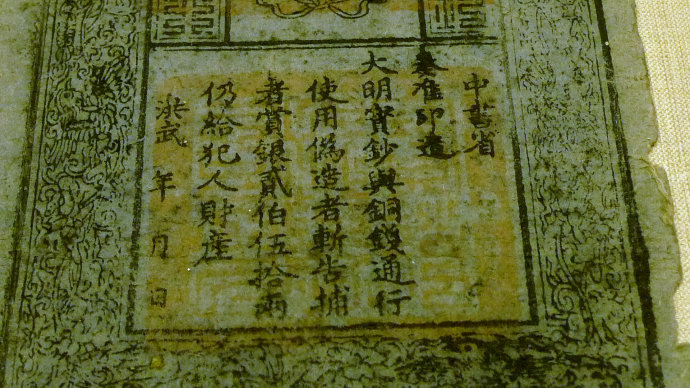 中書省
奏准印造
大明寶鈔與銅錢通行
使用偽造者斬告捕
者賞銀貳伯伍拾兩
仍給犯人財產
洪武 年 月 日